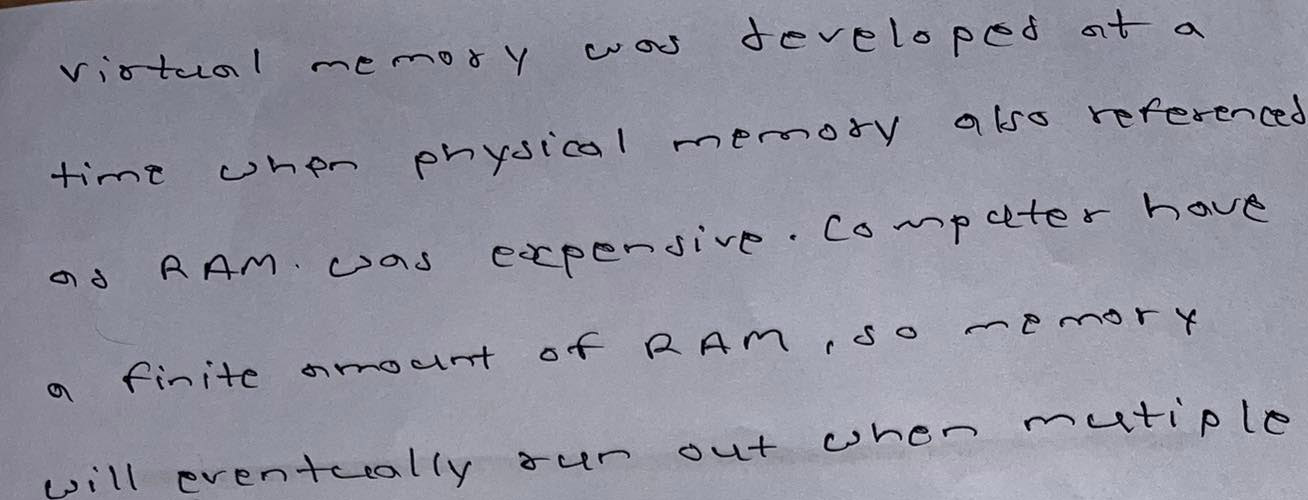 virtual memory was developed at a
time when physical memory also referenced
as RAM. was expensive. Computer have
a finite amount of RAM, so memory
will eventually run out when mutiple